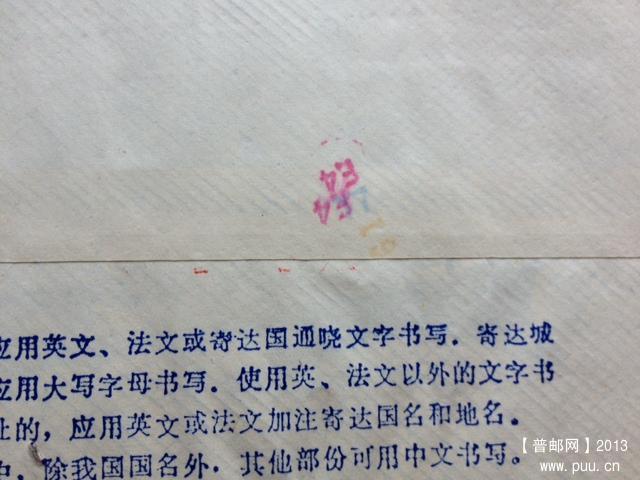 应用英文、法文或寄达国通晓文字书写．寄达城
应用大写字母书写．使用英、法文以外的文字书
址的，应用英文或法文加注寄达国名和地名。
中，除我国国名外，其他部份可用中文书写。
【普邮网】2013
www.puu.cn